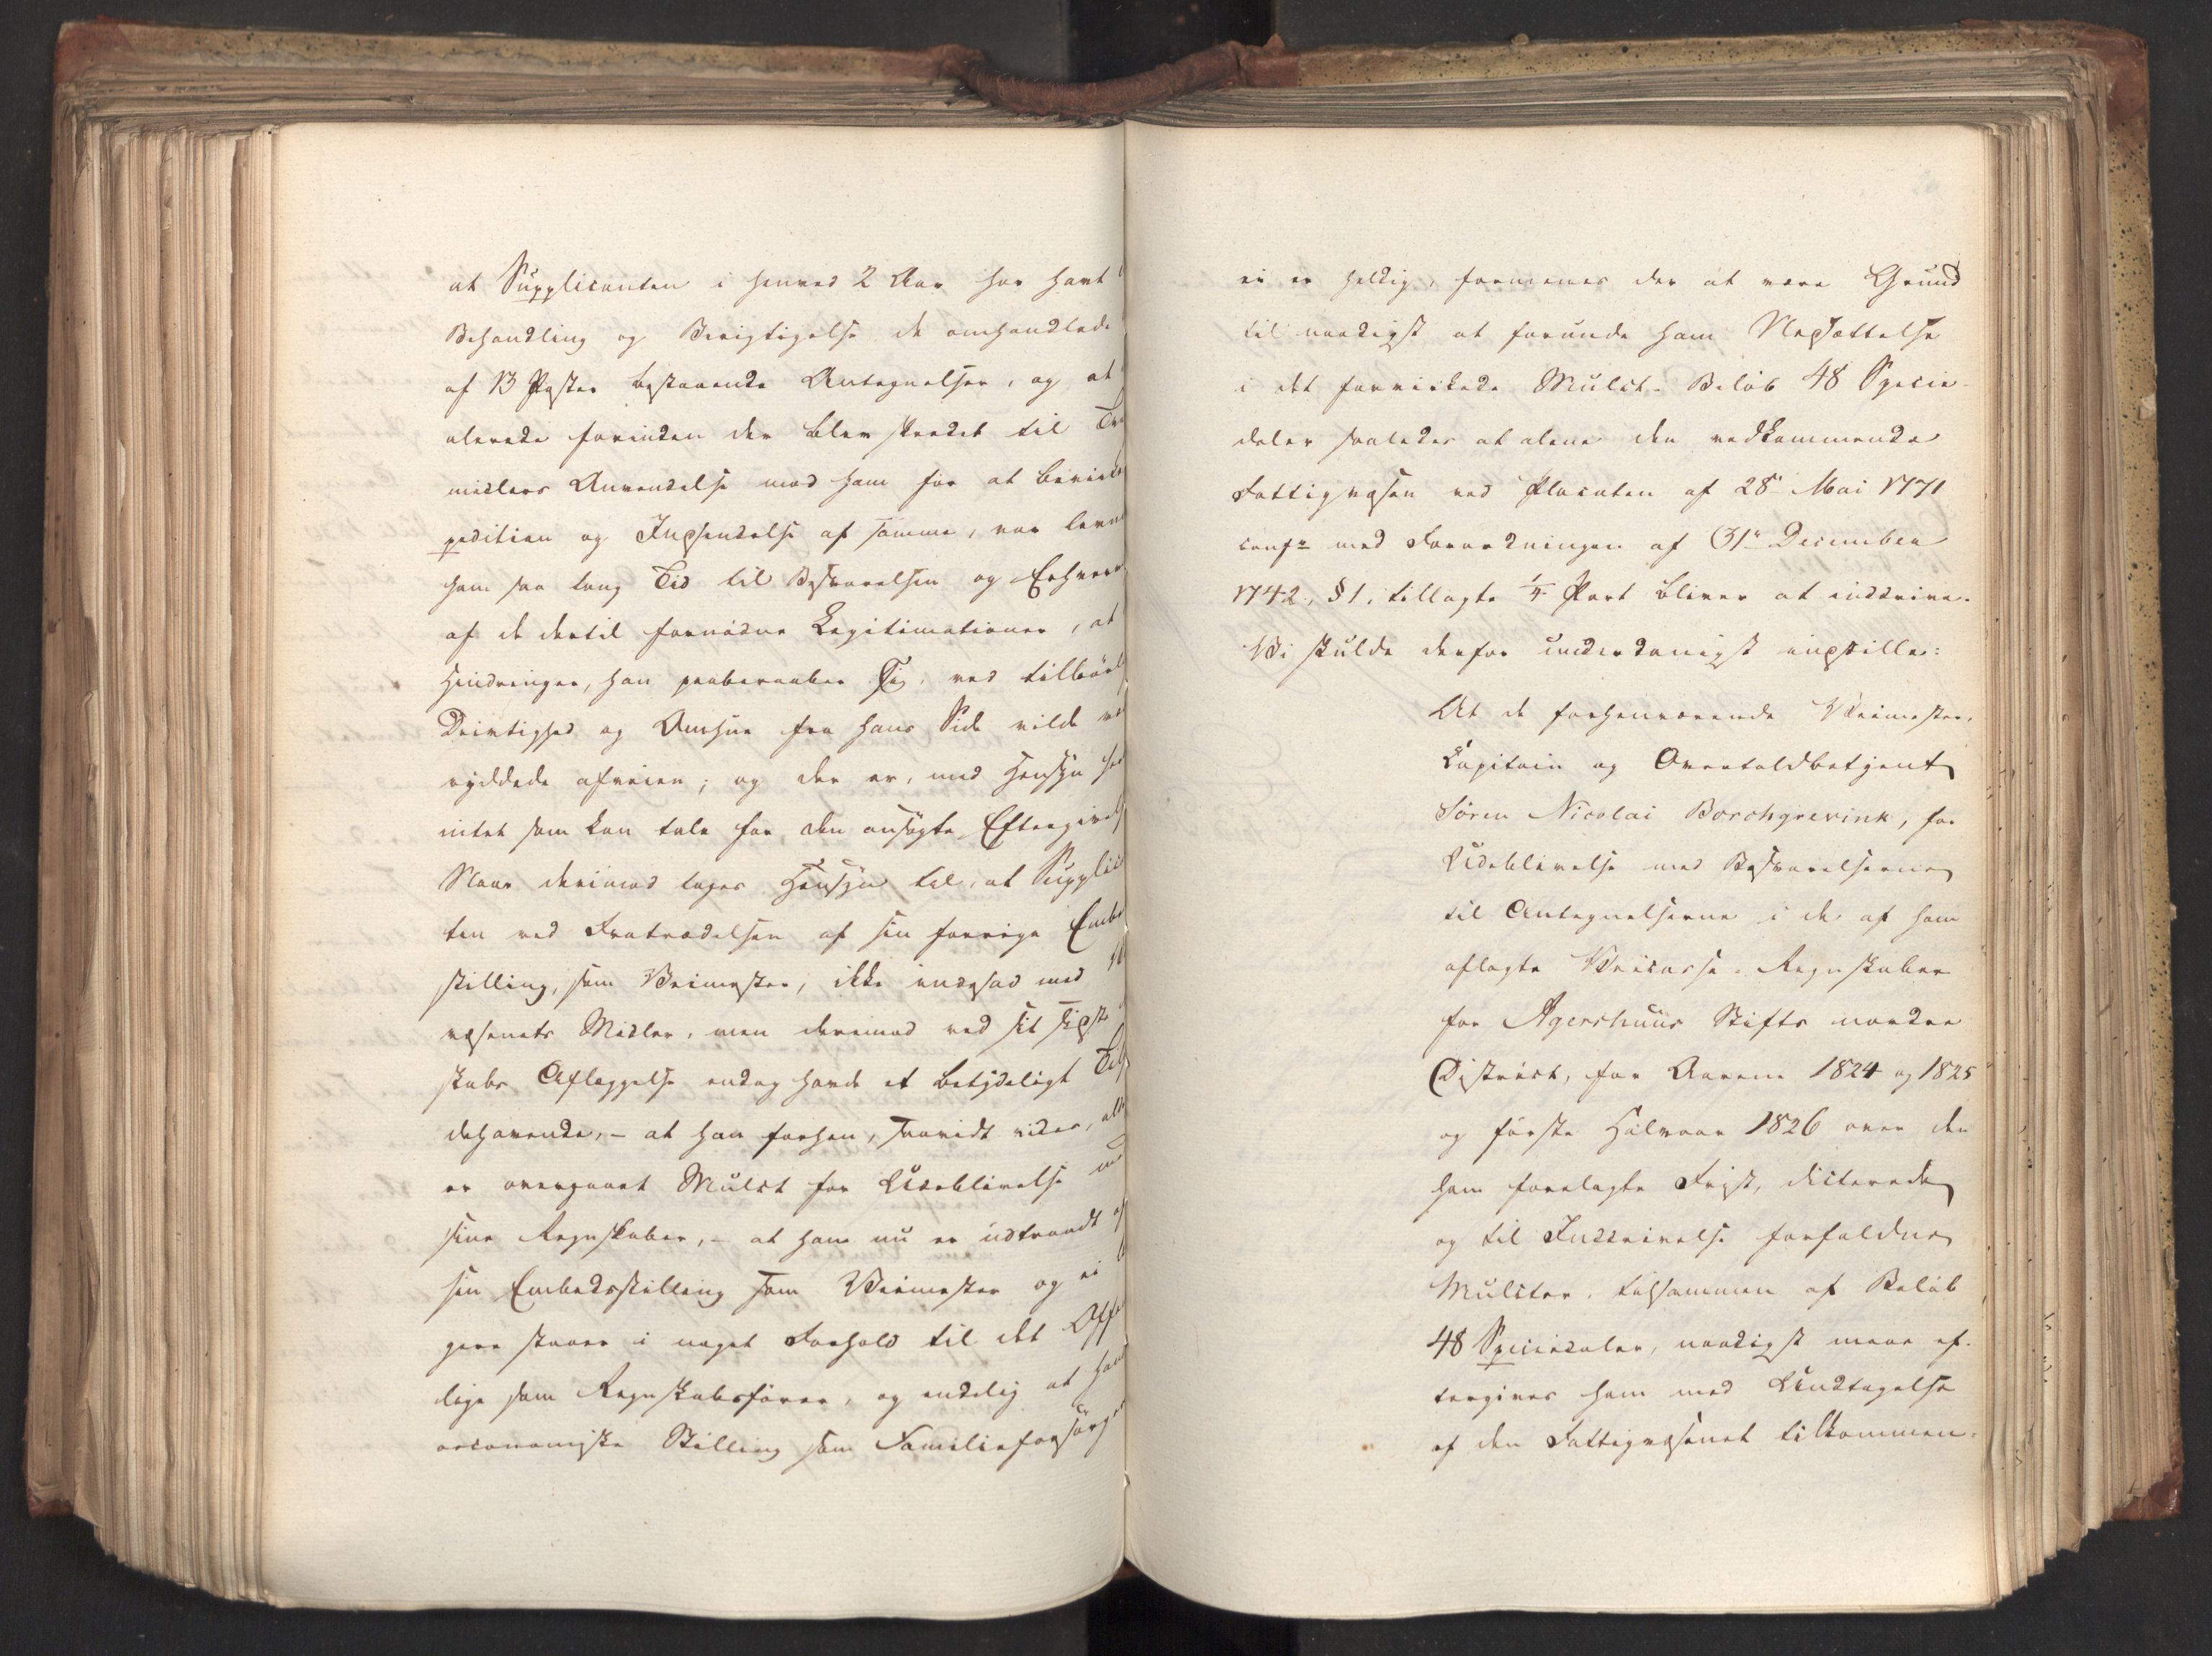 at Supplicanten i henved 2 Aar har havt
Behandling og Berigtigelse de omhandlede
af 13 Poster bestaaende Antegnelser, og at
alerede forinden der blev skredet til
midlers Anvendelse mod ham for at bevirke
pedition og Indsendelse af samme, var levnet
ham saa lang Tid til Besvarelsen og Erhverv
af de dertil fornödne Legitimationer, at
Hindringer, han paaberaaber Sig, ved tilbörlig
Drivtighed og Omhue fra hans Side vilde
ryddede afveien; og der er, med Hensyn
intet som kan tale for den ansøgte Eftergivelse
Naar derimod tages Hensyn til, at Supplic
ten ved Fratrædelsen af sin forrige Embeds
stilling, som Veimester, ikke indesad med
væsenets Midler, men derimod ved sit sidste
skabs Aflæggelse endog havde et betydeligt Til
dehavende, – at han forhen, saavidt vides, al
er overgaaet Mulct for Udeblivelse med
sine Regnskaber, – at han nu er udtraadt af
sin Embedsstilling som Veimester og ei
gere staaer i noget Forhold til det Offe
lige som Regnskabsförer, og endelig at hans
oeconomiske Stilling som Familieforsörger
ei er heldig, formenes der at være Grund
til naadigst at forunde ham Nedsættelse
i det forvirkede Mulct-Belöb 48 Specie
daler saaledes at alene den vedkommende
Fattigvæsen ved Placaten af 28de Mai 1771
confr med Forordningen af 31te December
1742, § 1, tillagte 1/4 Part bliver at inddrive.
Vi skulde derfor underdanigst indstille:
At de forhenværende Veimester,
Capitain og Overtoldbetjent
Sören Nicolai Borchgrevink, for
Udeblivelse med Besvarelserne
til Antegnelserne i de af ham
aflagte Veicasse-Regnskaber
for Agershuus Stifts nordre
District, for Aarene 1824 og 1825
og förste Halvaar 1826 over den
ham forelagte Frist, dicterede
og til Inddrivelse forfaldne
Mulcter, tilsammen af Belöb
48 Speciedaler, naadigst maae ef-
tergives ham med Undtagelse
af den Fattigvæsenet tilkommen-